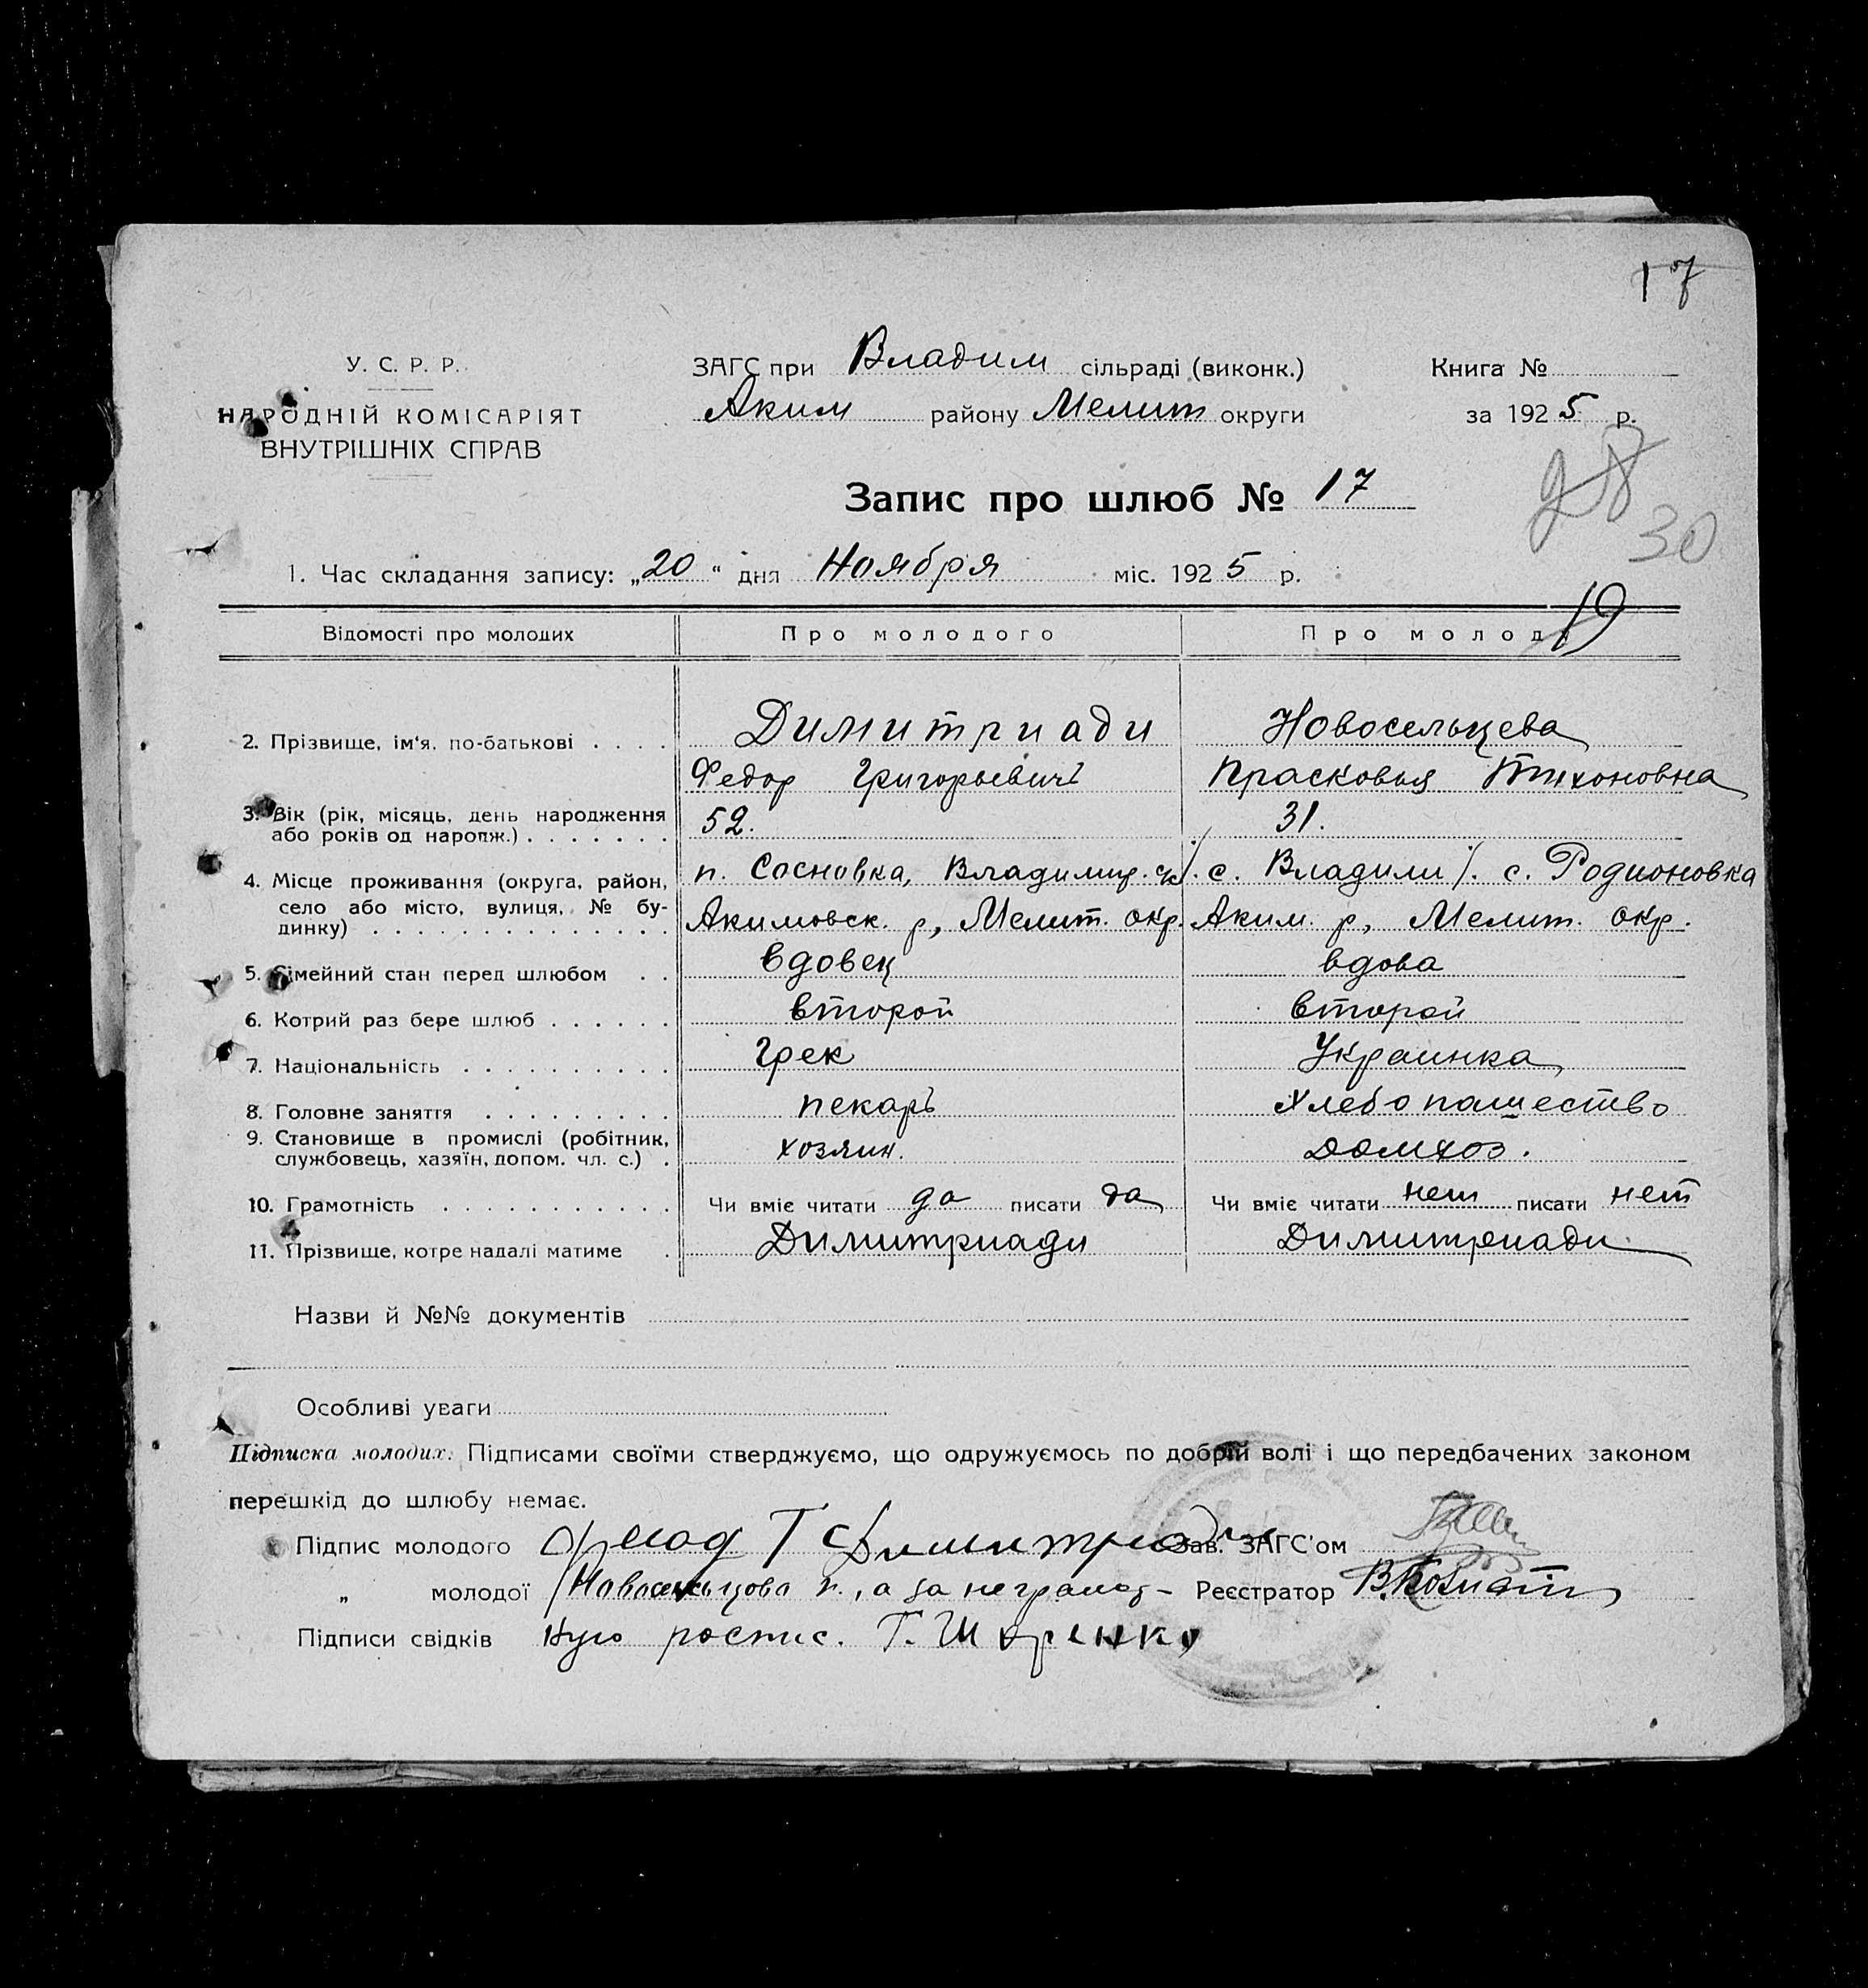 17
У. С. Р. Р.
НАРОДНІЙ КОМІСАРІЯТ
ВНУТРІШНІХ СПРАВ
ЗАГС при Владим сільраді (виконк.)
Аким району Мелит округи
Книга №
за 1925 р.
Запис про шлюб № 17
28
30
1. Час складання запису: „20“ дня Ноября міс. 1925 р.
19
Відомості про молодих Про молодого Про молоду
2. Прізвище, ім‘я, по-батькові . . . . Димитриади Новосельцева
Федор Григорьевичъ Прасковья Тихоновна
3. Вік (рік, місяць, день народження або років од нарօдж.) . . . . . . . 52. 31.
4. Місце проживання (округа, район, п. Сосновка, Владимир. с. Владими). с. Родионовка
село або місто, вулиця, № бу-
динку) . . . . . . . . . . . . . . Акимовск. р, Мелит. окр. Аким. р, Мелит. окр.
5. Сімейний стан перед шлюбом . . вдовец вдова
6. Котрий раз бере шлюб . . . . . . второй второй
7. Національність . . . . . . . . . . Грек Украинка
8. Головне заняття . . . . . . . . . пекарь Хлебопашество
9. Становище в промислі (робітник,
службовець, хазяїн, допом. чл. с.) . хозяин. Домхоз.
10. Грамотність . . . . . . . . . . . Чи вміє читати да писати да Чи вміє читати нет писати нет
11. Прізвище, котре надалі матиме . Димитриади Димитриади
Назви й №№ документів
Особливі уваги
Підписка молодих. Підписами своїми стверджуємо, що одружуємось по добрій волі і що передбачених законом
перешкід до шлюбу немає.
Підпис молодого Димитриади Зав. ЗАГС'ом
„ молодої Новосельцова п., а за неграмот- Реєстратор
Підписи свідків ную роспис. Г.